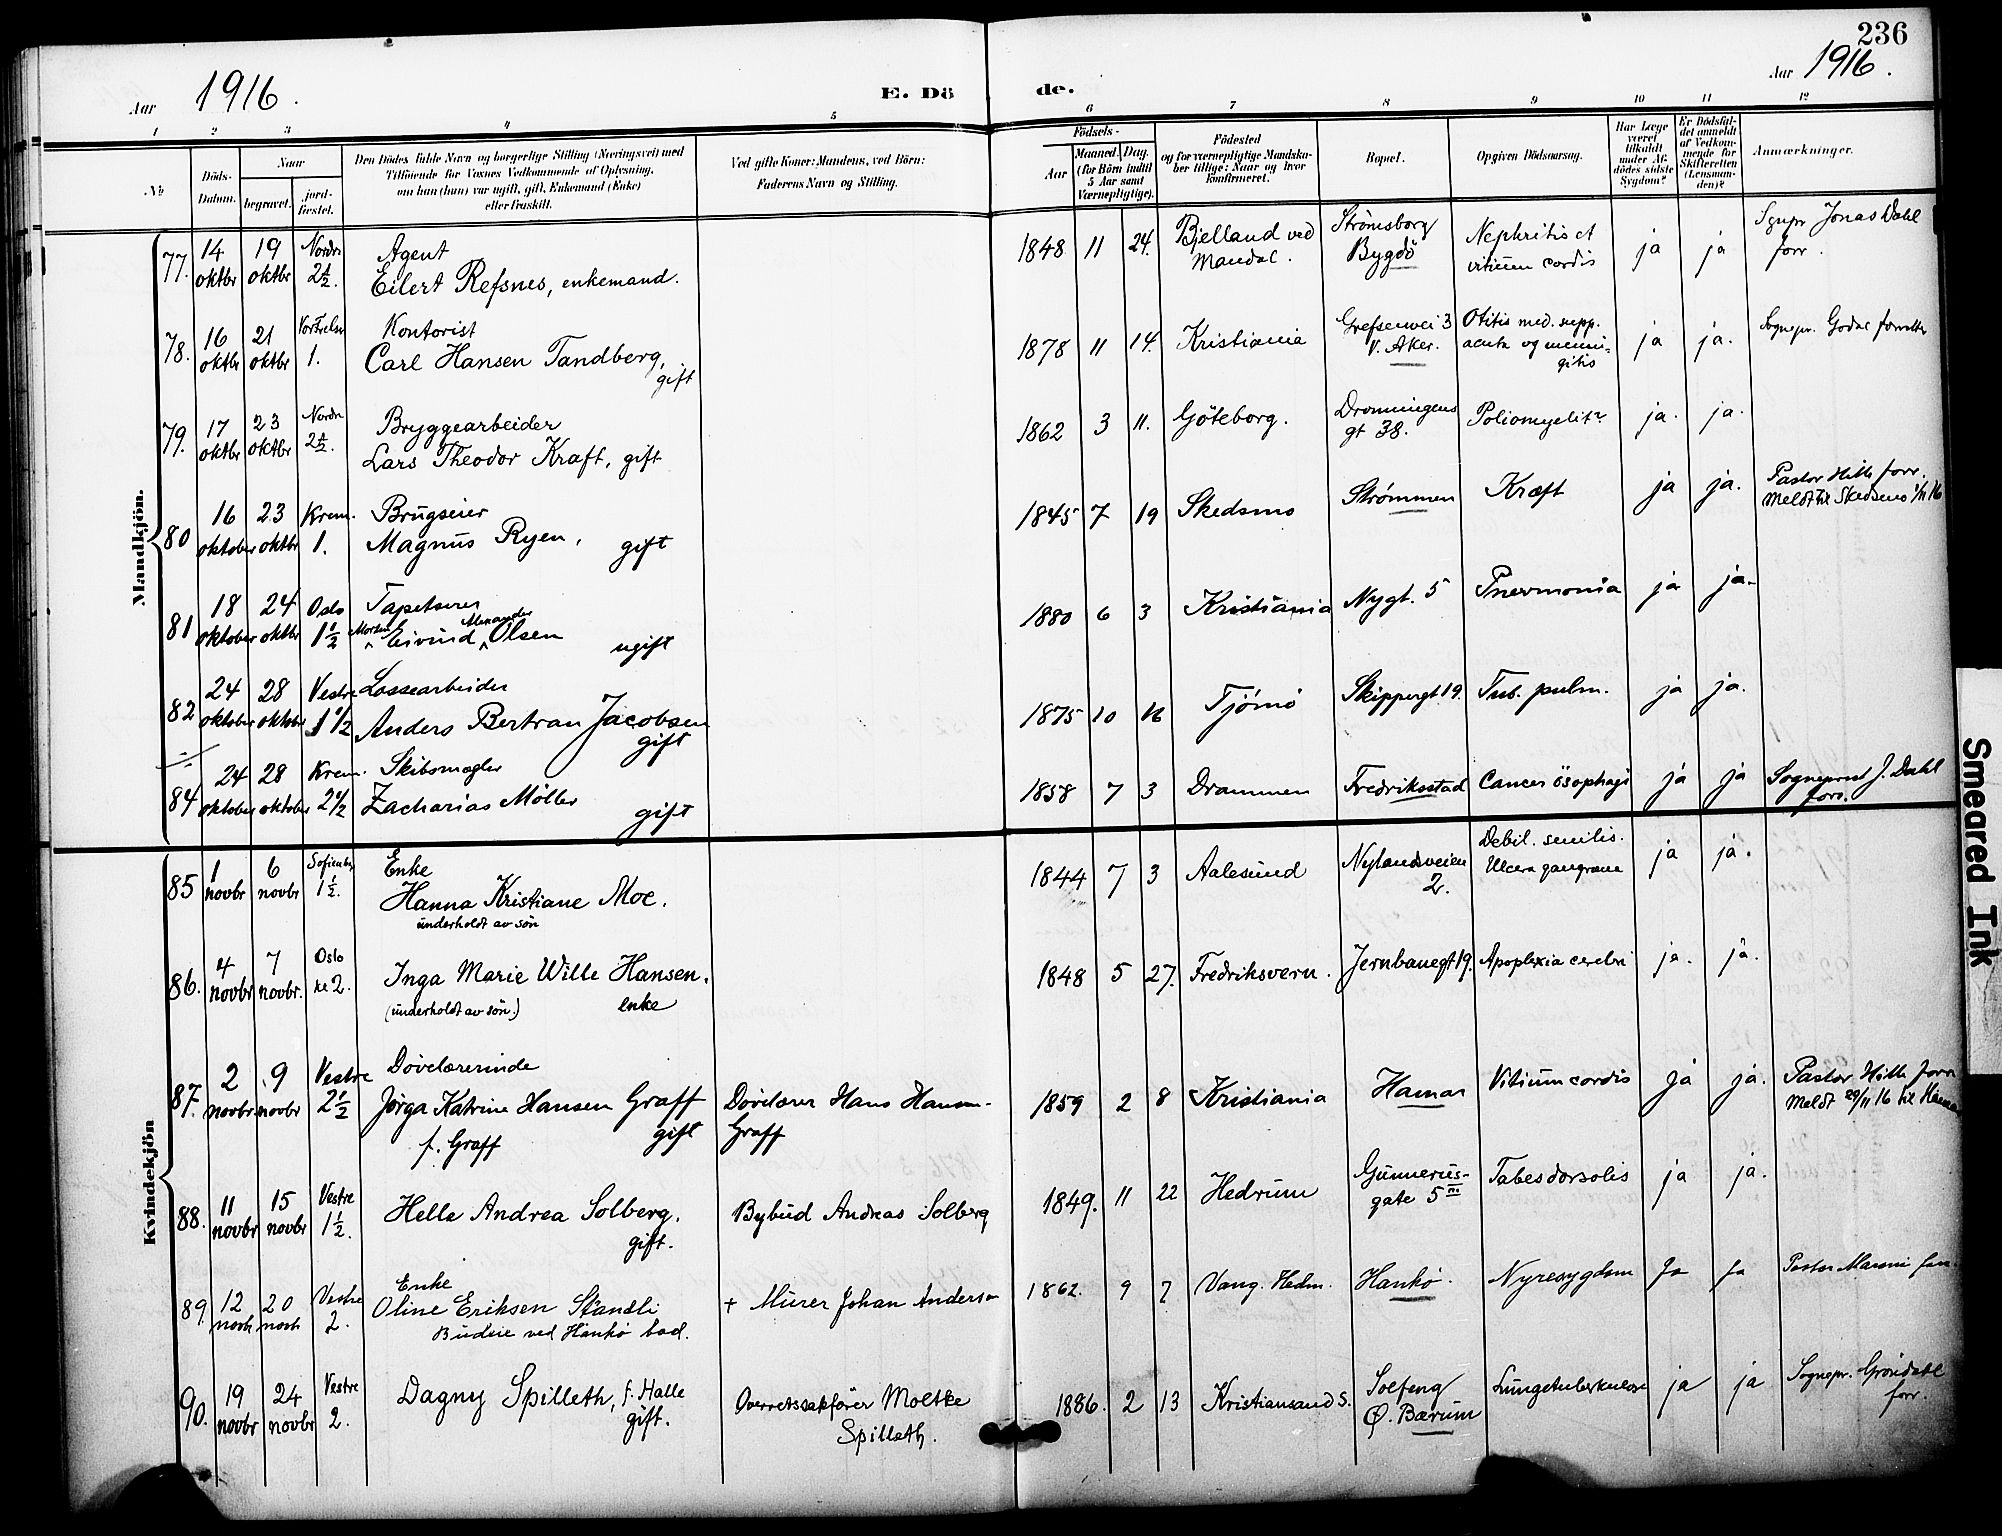 236
Aar 1916.
E. Dö
de.
Aar 1916.
1 2 3 4 5 6 7 8 9 10 11 12
No
Döds-
Datum.
Naar
begravet.
jord-
fæstet.
Den Dödes fulde Navn og borgerlige Stilling (Næringsvei) med
Tilföiende for Voxnes Vedkommende af Oplysning,
om han (hun) var ugift, gift, Enkemand (Enke)
eller fraskilt.
Ved gifte Koner: Mandens, ved Börn:
Faderens Navn og Stilling.
Födsels-
Aar
Maaned. Dag.
(for Börn indtil
5 Aar samt
Værnepligtige).
Födested
og for værnepligtige Mandska-
ber tillige: Naar og hvor
konfirmeret.
Bopæl.
Opgiven Dödsaarsag.
Har Læge
været
tilkaldt
under Af-
dödes sidste
Sygdom?
Er Dödsfal-
det anmeldt
af Vedkom-
mende for
Skifteretten
(Lensman-
den)?
Anmærkninger.
Mandkjön.
77. 14 oktbr 19 oktbr Nordre 2½.
Agent
Eilert Refsnes, enkemand.
1848 11 24. Bjelland ved Mandal.
Strömsborg Bygdö
Nephritis et vitium cordis
ja ja
Sgnepr Jonas Dahl forr.
78. 16 oktbr 21 oktbr 1.
Kontorist
Carl Hansen Tandberg,
gift
1878 11 14. Kristiania
Grefsenvei 3 V. Aker.
Otitis med. supp. acuta og menin-
gitis
ja ja.
Sognepr. Godal forrettet
79. 17 oktbr 23 oktbr Nordre 2½.
Bryggearbeider
Lars Theodor Kraft, gift
1862 3 11. Göteborg.
Dronningens gt 38.
Poliomyelit
ja. ja.
80 16 oktober 23 oktbr Krem. 1.
Brugseier
Magnus Ryen, gift
1845 7 19 Skedsmo
Strømmen
Kræft
ja ja.
Pastor Hille forr.
Meldt til Skedsmo 1/11 16
81 18 oktober 24 oktbr Oslo 1½
Tapetserer
Morten Eivind Alexander Olsen ugift
1880 6 3 Kristiania
Nygt. 5
Pnevmonia
ja ja.
82 24 oktober 28 oktober Vestre 1½
Lossearbeider
Anders Bertran Jacobsen
gift
1875 10 16 Tjömö
Skippergt 19.
Tub. pulm.
ja ja.
84 24 oktober 28 oktober Krem. 2½
Skibsmægler
Zacharias Möller gift
1858 7 3 Drammen
Fredriksstad
Cancer ösophagi
ja ja
Sogneprest J. Dahl forr.
Kvindekjön
85 1 novbr 6 novbr Sofienbg 1½.
Enke
Hanna Kristiane Moe.
underholdt av sön
1844 7 3 Aalesund
Nylandsveien 2.
Debil. senilis.
Ulcera gangræna
ja ja.
86. 4 novbr 7 novbr. Oslo 2.
Inga Marie Wille Hansen.
(underholdt av sön.) enke
1848 5 27. Fredriksvern.
Jernbanegt 19.
Apoplexia cerebri
ja. ja.
87. 2 novbr 9 novbr Vestre 2½
Dövelærerinde
Jørga Katrine Hansen Graff
f. Graff gift
Dövelærer Hans Hansen-
Graff
1859 2 8 Kristiania
Hamar
Vitium cordis
ja ja.
Pastor Hille forr
Meldt 29/11 16 til Hamar
88. 11 novbr 15 novbr Vestre 1½.
Helle Andrea Solberg.
gift.
Bybud Andreas Solberg
1849. 11 22 Hedrum
Gunnerus-
gate 5 III
Tabes dorsalis
ja ja.
89. 12 novb 20 novb Vestre 2.
Enke
Oline Eriksen Standli
Budeie ved Hankø bad.
+ Murer Johan Anderson
1862. 9 7 Vang. Hedm.
Hankø.
Nyresygdom
Ja Ja
Pastor
90. 19 novbr 24 novbr Vestre 2.
Dagny Spilleth, f. Halle
gift.
Overretssakfører Moltke
Spilleth.
1886. 2 13 Kristiansand S.
Solfeng
Ø. Bærum
Lungetuberkulose
ja ja
Sognepr. Gröndahl
forr.
Smeared Ink